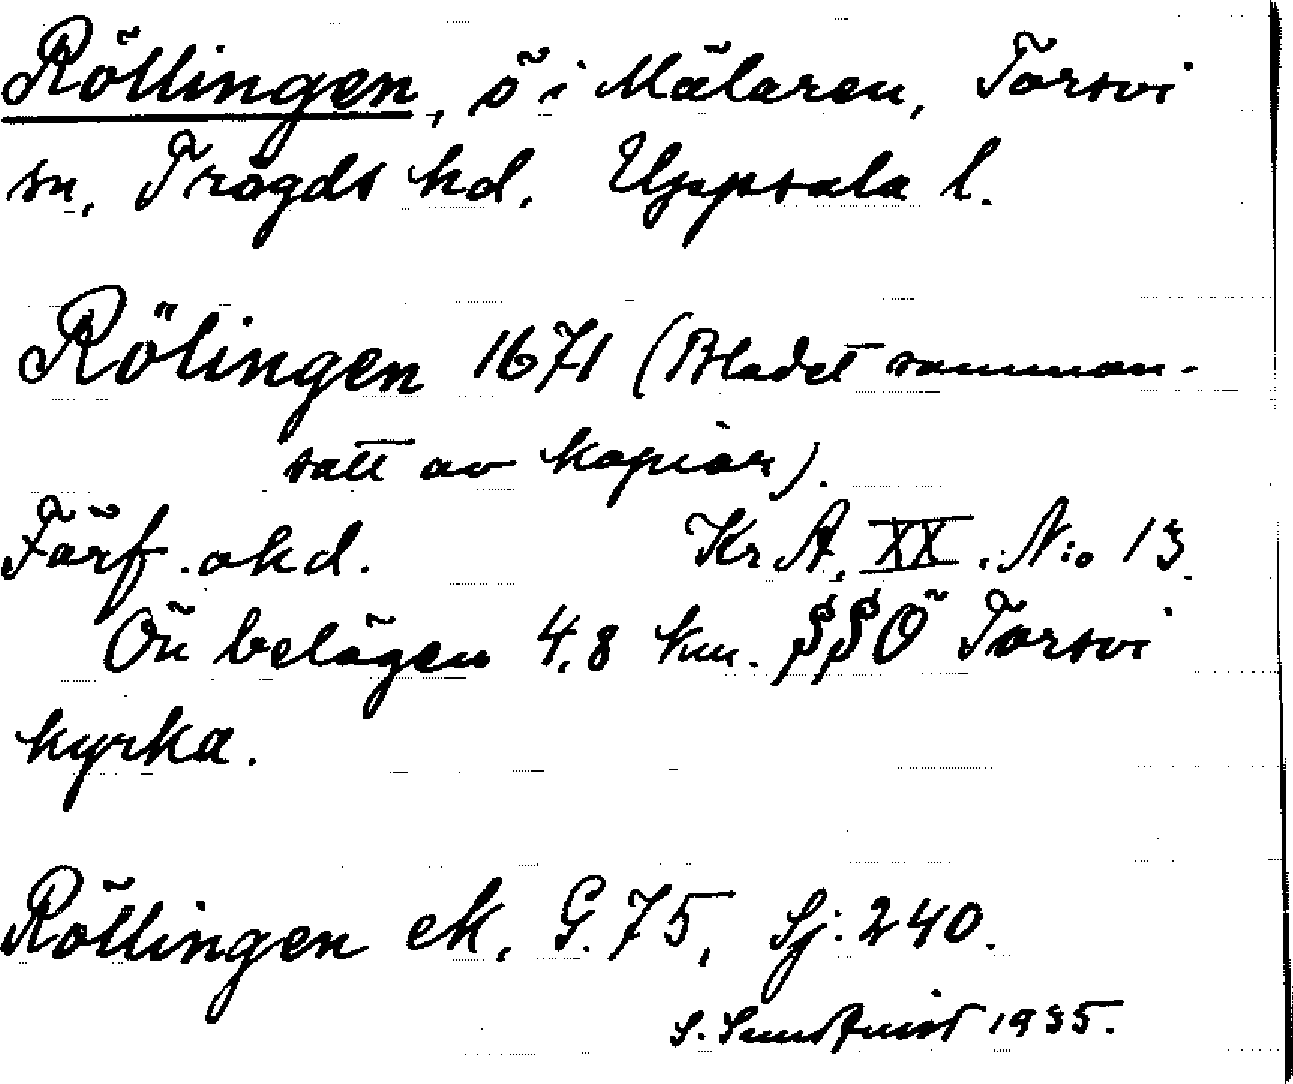 Röllingen, ö i Mälaren, Torsvi
sn, Trögds hd. Uppsala l.
Rölingen 1671 (Bladet samman-
satt av kopior).
Förf. okd. Kr. A. XX. N:o 13
Ön belägen 4,8 km. SSÖ Torsvi
kyrka.
Röllingen ek. G. 75, Sj: 240.
S. Sundquist 1935.